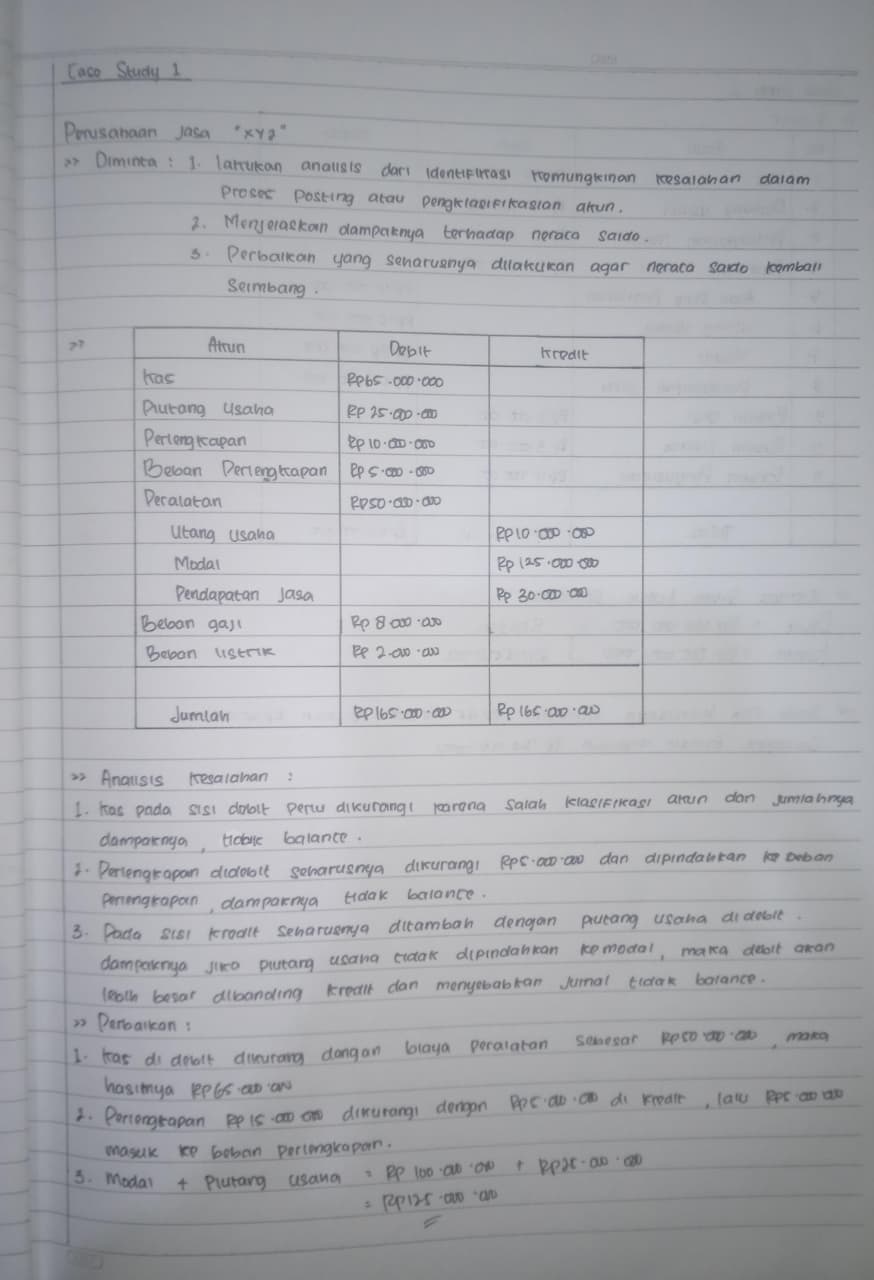 Case Study 1
Perusahaan Jasa "XYZ"
>> Diminta : 1. lakukan analisis dari identifikasi kemungkinan kesalahan dalam
proses posting atau pengklasifikasian akun.
2. Menjelaskan dampaknya terhadap neraca saldo.
3. Perbaikan yang seharusnya dilakukan agar neraca saldo kembali
seimbang.
>> Akun Debit Kredit
Kas Rp65.000.000
Piutang Usaha Rp 25.000.000
Perlengkapan Rp 10.000.000
Beban Perlengkapan Rp 5.000.000
Peralatan Rp50.000.000
Utang Usaha Rp10.000.000
Modal Rp 125.000.000
Pendapatan Jasa Rp 30.000.000
Beban gaji Rp 8.000.000
Beban listrik Rp 2.000.000
Jumlah Rp165.000.000 Rp165.000.000
>> Analisis Kesalahan :
1. Kas pada sisi debit perlu dikurangi karena salah klasifikasi akun dan jumlahnya
dampaknya, tidak balance.
2. Perlengkapan didebit seharusnya dikurangi Rp5.000.000 dan dipindahkan ke beban
perlengkapan, dampaknya tidak balance.
3. Pada sisi kredit seharusnya ditambah dengan piutang usaha di debit.
dampaknya jika piutang usaha tidak dipindahkan ke modal, maka debit akan
lebih besar dibanding kredit dan menyebabkan jurnal tidak balance.
>> Perbaikan :
1. Kas di debit dikurang dengan biaya peralatan sebesar Rp50.000.000, maka
hasilnya Rp65.000.000
2. Perlengkapan Rp 15.000.000 dikurangi dengan Rp5.000.000 di kredit, lalu Rp5.000.000
masuk ke beban perlengkapan.
3. Modal + Piutang usaha = Rp 100.000.000 + Rp25.000.000
= Rp125.000.000